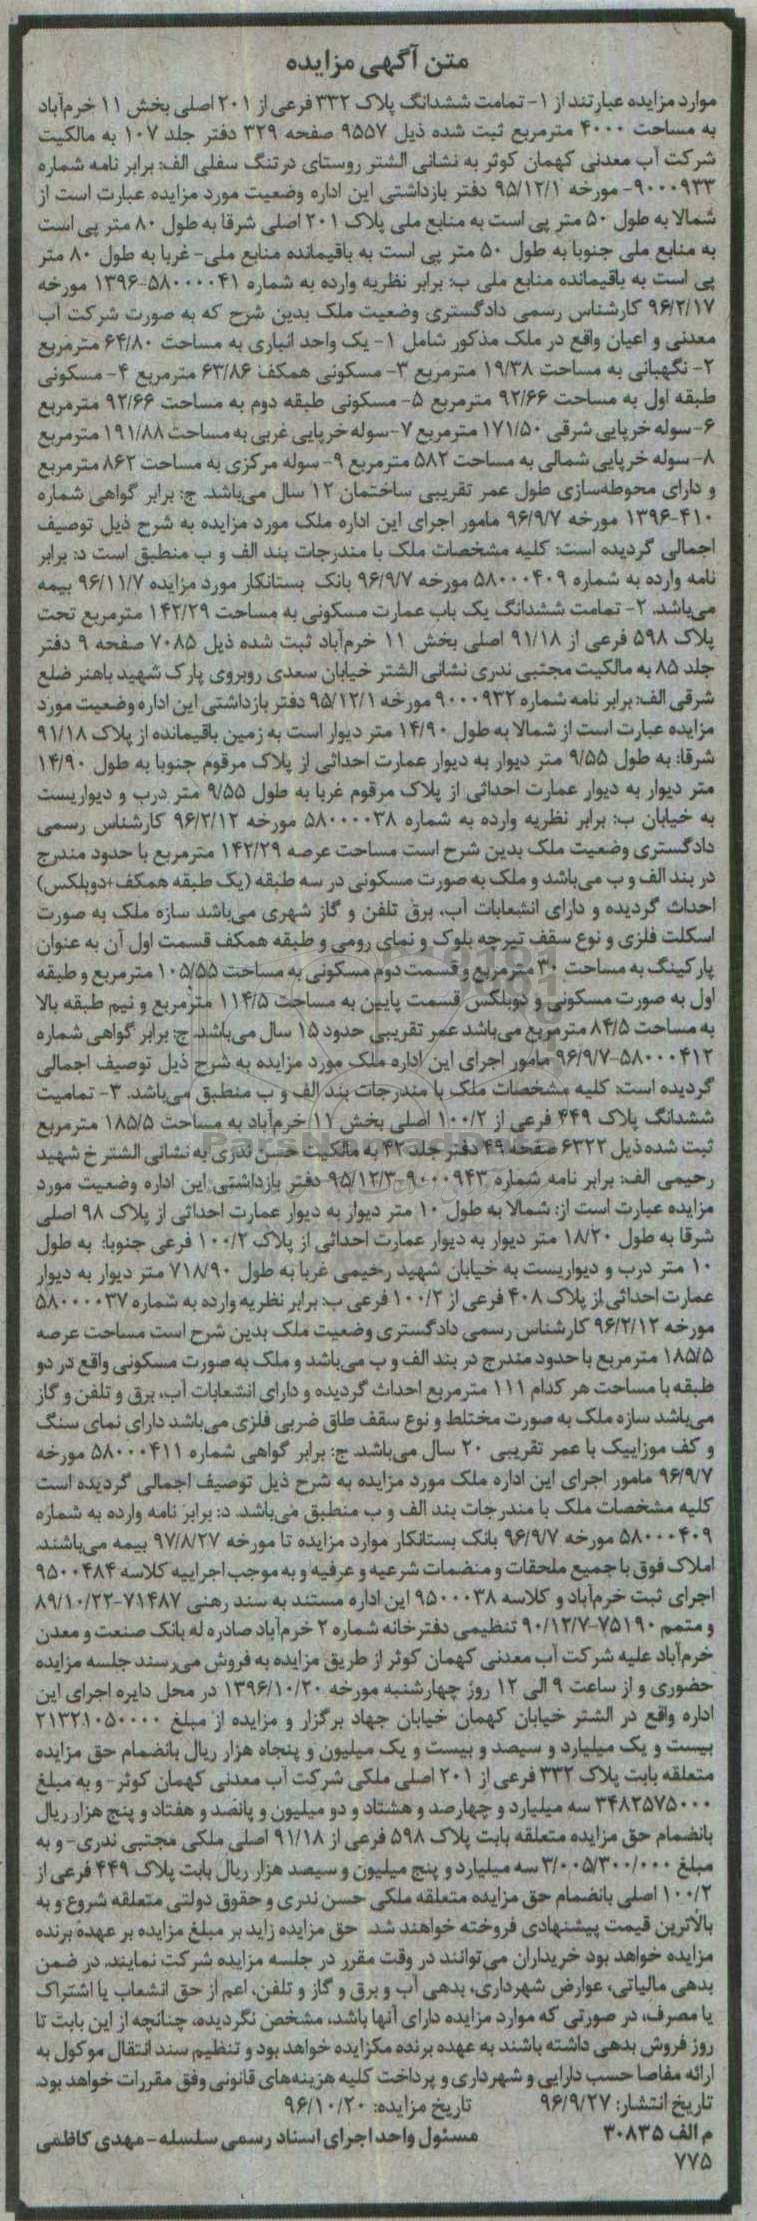 متن آگهی مزایده
موارد مزایده عبارتند از ۱- تمامت ششدانگ پلاک ۳۳۲ فرعی از ۲۰۱ اصلی بخش ۱۱ خرم‌آباد
به مساحت ۴۰۰۰ مترمربع ثبت شده ذیل ۹۵۵۷ صفحه ۳۲۹ دفتر جلد ۱۰۷ به مالکیت
شرکت آب معدنی کهمان کوثر به نشانی الشتر روستای درتنگ سفلی الف: برابر نامه شماره
۹۰۰۰۹۳۳- مورخه ۹۵/۱۲/۱ دفتر بازداشتی این اداره وضعیت مورد مزایده عبارت است از
شمالا به طول ۵۰ متر پی است به منابع ملی پلاک ۲۰۱ اصلی شرقا به طول ۸۰ متر پی است
به منابع ملی جنوبا به طول ۵۰ متر پی است به باقیمانده منابع ملی- غربا به طول ۸۰ متر
پی است به باقیمانده منابع ملی ب: برابر نظریه وارده به شماره ۵۸۰۰۰۰۴۱-۱۳۹۶ مورخه
۹۶/۲/۱۷ کارشناس رسمی دادگستری وضعیت ملک بدین شرح که به صورت شرکت آب
معدنی و اعیان واقع در ملک مذکور شامل ۱- یک واحد انباری به مساحت ۶۴/۸۰ مترمربع
۲- نگهبانی به مساحت ۱۹/۳۸ مترمربع ۳- مسکونی همکف ۶۳/۸۶ مترمربع ۴- مسکونی
طبقه اول به مساحت ۹۲/۶۶ مترمربع ۵- مسکونی طبقه دوم به مساحت ۹۲/۶۶ مترمربع
۶- سوله خرپایی شرقی ۱۷۱/۵۰ مترمربع ۷- سوله خرپایی غربی به مساحت ۱۹۱/۸۸ مترمربع
۸- سوله خرپایی شمالی به مساحت ۵۸۲ مترمربع ۹- سوله مرکزی به مساحت ۸۶۲ مترمربع
و دارای محوطه‌سازی طول عمر تقریبی ساختمان ۱۲ سال می‌باشد. ج: برابر گواهی شماره
۱۳۹۶-۴۱۰ مورخه ۹۶/۹/۷ مامور اجرای این اداره ملک مورد مزایده به شرح ذیل توصیف
اجمالی گردیده است: کلیه مشخصات ملک با مندرجات بند الف و ب منطبق است د: برابر
نامه وارده به شماره ۵۸۰۰۰۴۰۹ مورخه ۹۶/۹/۷ بانک بستانکار مورد مزایده ۹۶/۱۱/۷ بیمه
می‌باشد. ۲- تمامت ششدانگ یک باب عمارت مسکونی به مساحت ۱۴۲/۲۹ مترمربع تحت
پلاک ۵۹۸ فرعی از ۹۱/۱۸ اصلی بخش ۱۱ خرم‌آباد ثبت شده ذیل ۷۰۸۵ صفحه ۹ دفتر
جلد ۸۵ به مالکیت مجتبی ندری نشانی الشتر خیابان سعدی روبروی پارک شهید باهنر ضلع
شرقی الف: برابر نامه شماره ۹۰۰۰۹۳۲ مورخه ۹۵/۱۲/۱ دفتر بازداشتی این اداره وضعیت مورد
مزایده عبارت است از شمالا به طول ۱۴/۹۰ متر دیوار است به زمین باقیمانده از پلاک ۹۱/۱۸
شرقا: به طول ۹/۵۵ متر دیوار به دیوار عمارت احداثی از پلاک مرقوم جنوبا به طول ۱۴/۹۰
متر دیوار به دیوار عمارت احداثی از پلاک مرقوم غربا به طول ۹/۵۵ متر درب و دیواریست
به خیابان ب: برابر نظریه وارده به شماره ۵۸۰۰۰۰۳۸ مورخه ۹۶/۲/۱۲ کارشناس رسمی
دادگستری وضعیت ملک بدین شرح است مساحت عرصه ۱۴۲/۲۹ مترمربع با حدود مندرج
در بند الف و ب می‌باشد و ملک به صورت مسکونی در سه طبقه (یک طبقه همکف+دوبلکس)
احداث گردیده و دارای انشعابات آب، برق تلفن و گاز شهری می‌باشد سازه ملک به صورت
اسکلت فلزی و نوع سقف تیرچه بلوک و نمای رومی و طبقه همکف قسمت اول آن به عنوان
پارکینگ به مساحت ۳۰ مترمربع و قسمت دوم مسکونی به مساحت ۱۰۵/۵۵ مترمربع و طبقه
اول به صورت مسکونی و دوبلکس قسمت پایین به مساحت ۱۱۴/۵ مترمربع و نیم طبقه بالا
به مساحت ۸۴/۵ مترمربع می‌باشد عمر تقریبی حدود ۱۵ سال می‌باشد. ج: برابر گواهی شماره
۵۸۰۰۰۴۱۲-۹۶/۹/۷ مامور اجرای این اداره ملک مورد مزایده به شرح ذیل توصیف اجمالی
گردیده است: کلیه مشخصات ملک با مندرجات بند الف و ب منطبق می‌باشد. ۳- تمامیت
ششدانگ پلاک ۴۴۹ فرعی از ۱۰۰/۲ اصلی بخش ۱۱ خرم‌آباد به مساحت ۱۸۵/۵ مترمربع
ثبت شده ذیل ۶۳۲۲ صفحه ۴۹ دفتر جلد ۴۲ به مالکیت حسن ندری به نشانی الشتر خ شهید
رحیمی الف: برابر نامه شماره ۹۰۰۰۹۴۳-۹۵/۱۲/۳ دفتر بازداشتی این اداره وضعیت مورد
مزایده عبارت است از: شمالا به طول ۱۰ متر دیوار به دیوار عمارت احداثی از پلاک ۹۸ اصلی
شرقا به طول ۱۸/۲۰ متر دیوار به دیوار عمارت احداثی از پلاک ۱۰۰/۲ فرعی جنوبا: به طول
۱۰ متر درب و دیواریست به خیابان شهید رحیمی غربا به طول ۷۱۸/۹۰ متر دیوار به دیوار
عمارت احداثی از پلاک ۴۰۸ فرعی از ۱۰۰/۲ فرعی ب: برابر نظریه وارده به شماره ۵۸۰۰۰۰۳۷
مورخه ۹۶/۲/۱۲ کارشناس رسمی دادگستری وضعیت ملک بدین شرح است مساحت عرصه
۱۸۵/۵ مترمربع با حدود مندرج در بند الف و ب می‌باشد و ملک به صورت مسکونی واقع در دو
طبقه با مساحت هر کدام ۱۱۱ مترمربع احداث گردیده و دارای انشعابات آب، برق و تلفن و گاز
می‌باشد سازه ملک به صورت مختلط و نوع سقف طاق ضربی فلزی می‌باشد دارای نمای سنگ
و کف موزاییک با عمر تقریبی ۲۰ سال می‌باشد. ج: برابر گواهی شماره ۵۸۰۰۰۴۱۱ مورخه
۹۶/۹/۷ مامور اجرای این اداره ملک مورد مزایده به شرح ذیل توصیف اجمالی گردیده است
کلیه مشخصات ملک با مندرجات بند الف و ب منطبق می‌باشد. د: برابر نامه وارده به شماره
۵۸۰۰۰۴۰۹ مورخه ۹۶/۹/۷ بانک بستانکار موارد مزایده تا مورخه ۹۷/۸/۲۷ بیمه می‌باشند.
املاک فوق با جمیع ملحقات و منضمات شرعیه و عرفیه و به موجب اجراییه کلاسه ۹۵۰۰۴۸۴
اجرای ثبت خرم‌آباد و کلاسه ۹۵۰۰۰۳۸ این اداره مستند به سند رهنی ۷۱۴۸۷-۸۹/۱۰/۲۲
و متمم ۷۵۱۹۰-۹۰/۱۲/۷ تنظیمی دفترخانه شماره ۲ خرم‌آباد صادره له بانک صنعت و معدن
خرم‌آباد علیه شرکت آب معدنی کهمان کوثر از طریق مزایده به فروش می‌رسند جلسه مزایده
حضوری و از ساعت ۹ الی ۱۲ روز چهارشنبه مورخه ۱۳۹۶/۱۰/۲۰ در محل دایره اجرای این
اداره واقع در الشتر خیابان کهمان خیابان جهاد برگزار و مزایده از مبلغ ۲۱۳۲۱۰۵۰۰۰۰
بیست و یک میلیارد و سیصد و بیست و یک میلیون و پنجاه هزار ریال بانضمام حق مزایده
متعلقه بابت پلاک ۳۳۲ فرعی از ۲۰۱ اصلی ملکی شرکت آب معدنی کهمان کوثر- و به مبلغ
۳۴۸۲۵۷۵۰۰۰ سه میلیارد و چهارصد و هشتاد و دو میلیون و پانصد و هفتاد و پنج هزار ریال
بانضمام حق مزایده متعلقه بابت پلاک ۵۹۸ فرعی از ۹۱/۱۸ اصلی ملکی مجتبی ندری- و به
مبلغ ۳/۰۰۵/۳۰۰/۰۰۰ سه میلیارد و پنج میلیون و سیصد هزار ریال بابت پلاک ۴۴۹ فرعی از
۱۰۰/۲ اصلی بانضمام حق مزایده متعلقه ملکی حسن ندری و حقوق دولتی متعلقه شروع و به
بالاترین قیمت پیشنهادی فروخته خواهند شد. حق مزایده زاید بر مبلغ مزایده بر عهده برنده
مزایده خواهد بود خریداران می‌توانند در وقت مقرر در جلسه مزایده شرکت نمایند. در ضمن
بدهی مالیاتی، عوارض شهرداری، بدهی آب و برق و گاز و تلفن، اعم از حق انشعاب یا اشتراک
یا مصرف، در صورتی که موارد مزایده دارای آنها باشد، مشخص نگردیده، چنانچه از این بابت تا
روز فروش بدهی داشته باشند به عهده برنده مکزایده خواهد بود و تنظیم سند انتقال موکول به
ارائه مفاصا حسب دارایی و شهرداری و پرداخت کلیه هزینه‌های قانونی وفق مقررات خواهد بود.
تاریخ انتشار: ۹۶/۹/۲۷ تاریخ مزایده: ۹۶/۱۰/۲۰
م الف ۳۰۸۳۵ مسئول واحد اجرای اسناد رسمی سلسله- مهدی کاظمی
۷۷۵